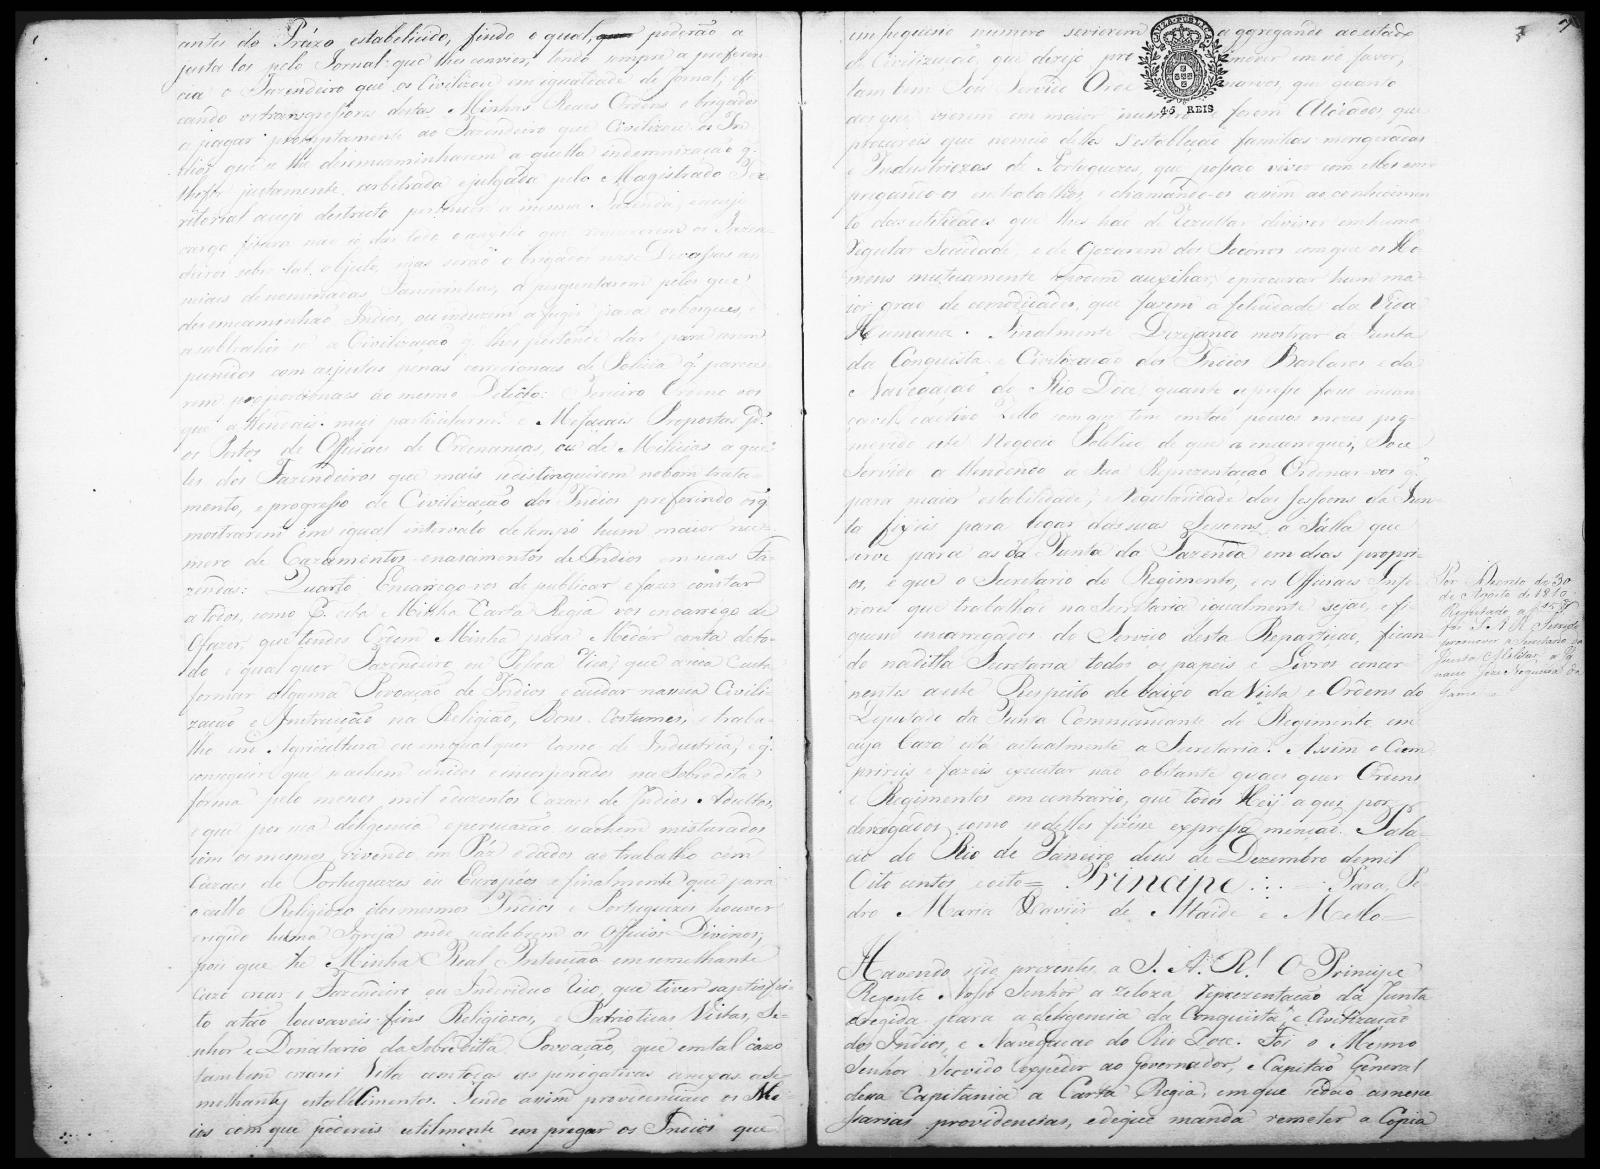 antes do Prázo estabelicido, findo o qual, poderão a
justa los pelo Jornal que lhes convier, tendo sempre a preferen
cia o Fazendeiro que os Civilizou em igualdade de Jornal, fi
cando os transgressores destas Minhas Reaes Ordens obrigados
a pagar promptamente ao Fazendeiro que Civilizou os In
dios que se lhe desencaminharem aquella indemnização q.
lhe for justamente arbitrada e julgada pelo Magistrado Ter
ritorial a cujo destricto pertencer a mesma Fazenda, e a cujo
cargo ficará não só dar todo o auxilio que requererem os Fazen
deiros sobre tal objecto, mas serão obrigados nas Devassas an
nuaes denominadas Janeirinhas, a perguntarem pelos que
desencaminhão Indios, ou induzem a fugir para os bosques, e
a subtrahir se a Civilização q. lhes pertende dar para serem
punidos com as justas penas correcionaes de Policia q. parece
rem proporcionaes ao mesmo Delicto: Terceiro Ordeno vos
que attendais mui particularm.e e Me façaes Propostas p.a
os Postos de Officiaes de Ordenanças, ou de Milicias a quel
les dos Fazendeiros que mais se distinguirem no bom trata
mento, e progresso de Civilização dos Indios preferindo os q.
mostrarem em igual intervalo de tempo hum maior nu
mero de Cazamentos e nascimentos de Indios em suas Fa
zendas: Quarto Encarrego-vos de publicar, e fazer constar
a todos, como p. esta Minha Carta Regia vos encarrego de
o fazer, que tendes Ordem Minha para Me dár conta de to
do e qual quer Fazendeiro, ou Pessoa Rica, que a sua Custa
formar alguma Povoação de Indios e cuidar na sua Civili
zação e Instrucção na Religião, Bons Costumes, e traba
lho em Agricultura ou em qual quer ramo de Industria, e q.
conseguir que se achem unidos e incorporados na Sobredita
forma pelo menos mil e duzentos Cazaes de Indios Adultos,
e que por sua deligencia e persuazão se achem misturados
com os mesmos vivendo em Páz e dados ao trabalho cem
Cazaes de Portuguezes ou Européos e finalmente que para
o culto Religiozo dos mesmos Indios e Portuguezes houver
erigido huma Igreja onde se celebrem os Officios Divinos;
pois que he Minha Real Intenção em semelhante
cazo crear o Fazendeiro ou Individuo Rico, que tiver satisfei
to a tão louvaveis fins Religiozos, e Patrioticas Vistas, Se=
nhor e Donatario da Sobreditta Povoação, que em tal cazo
tambem crearei Villa com todas as perrogativas anexas a se
melhantes estabelecimentos. Tendo assim providenciado os Me
ios com que podereis utilmente empregar os Indios que
em pequeno numero vierem aggregando ao estado
de Civilização, que dezejo promover em seo favor,
tambem Sou Servido Ordenarvos, que quanto
aos que vierem em maior numero e forem Aldeados, que
procureis que no meio delles se estabeleção familias morigeradas
e Industriozas de Portuguezes, que possão viver com elles em
pregando-os em trabalhos, e chamando-os assim ao conhecimen
to das utilidades que lhes hão de rezultar de viver em huma
regular Sociedade, e de gozarem dos Socorros com que os Ho
mens mutuamente podem auxiliar, e procurar hum ma
ior grao de comodidades, que fazem a felicidade da Vida
Humana. Finalmente Dezejando mostrar á Junta
da Conquista e Civilização dos Indios Barbaros e da
Navegação do Rio Doce quanto aprecio o seo incan
çavel, e activo Zello com que tem em tão poucos mezes pro
movido este Negocio Politico de que a encarreguei, Sou
Servido attendendo a Sua Reprezentação Ordenar-vos q.
para maior estabilidade, e Regularidade das Sessoens da Jun
ta fixeis para lugar das suas Sessoens, a Sálla que
serve para as da Junta da Fazenda em dias propri
os, e que o Secretario do Regimento, e os Officiaes Infe
riores que trabalhão na Secretaria igualmente sejão, e fi
quem encarregados do Serviço desta Repartição, fican
do na ditta Secretaria todos os papeis e Livros concer
nentes a este Respeito de baixo da Vista e Ordens do
Deputado da Junta Commandante do Regimento em
cuja Caza está actualmente a Secretaria. Assim o Cum
prireis e fareis executar não obstante quaes quer Ordens
e Regimentos em contrario, que todos Hey a qui por
derrogados como se delles fizésse expressa menção. Pala
cio do Rio de Janeiro dous de Dezembro de mil
Oito centos e oito = Principe :.. = Para Pe
dro Maria Xavier de Ataide e Mello =
Por Avizo de 30
de Agosto de 1810
Registado a f 15 v
foi S. A. R. Servido
promover a Secretario da
Junta Militar, a
José Nogueira da
Gama
Havendo sido prezentes a S. A. R.l O Principe
Regente Nosso Senhor a zeloza Reprezentação da Junta
eregida para a deligencia da Conquista e Civilização
dos Indios, e Navegação do Rio Doce. Foi o Mesmo
Senhor Servido Expedir ao Governador, e Capitão General
dessa Capitania a Carta Regia, em que se dão as neces
sarias providencias, e de que manda remeter a Copia
CAUZA PUBLICA
45 REIS
7